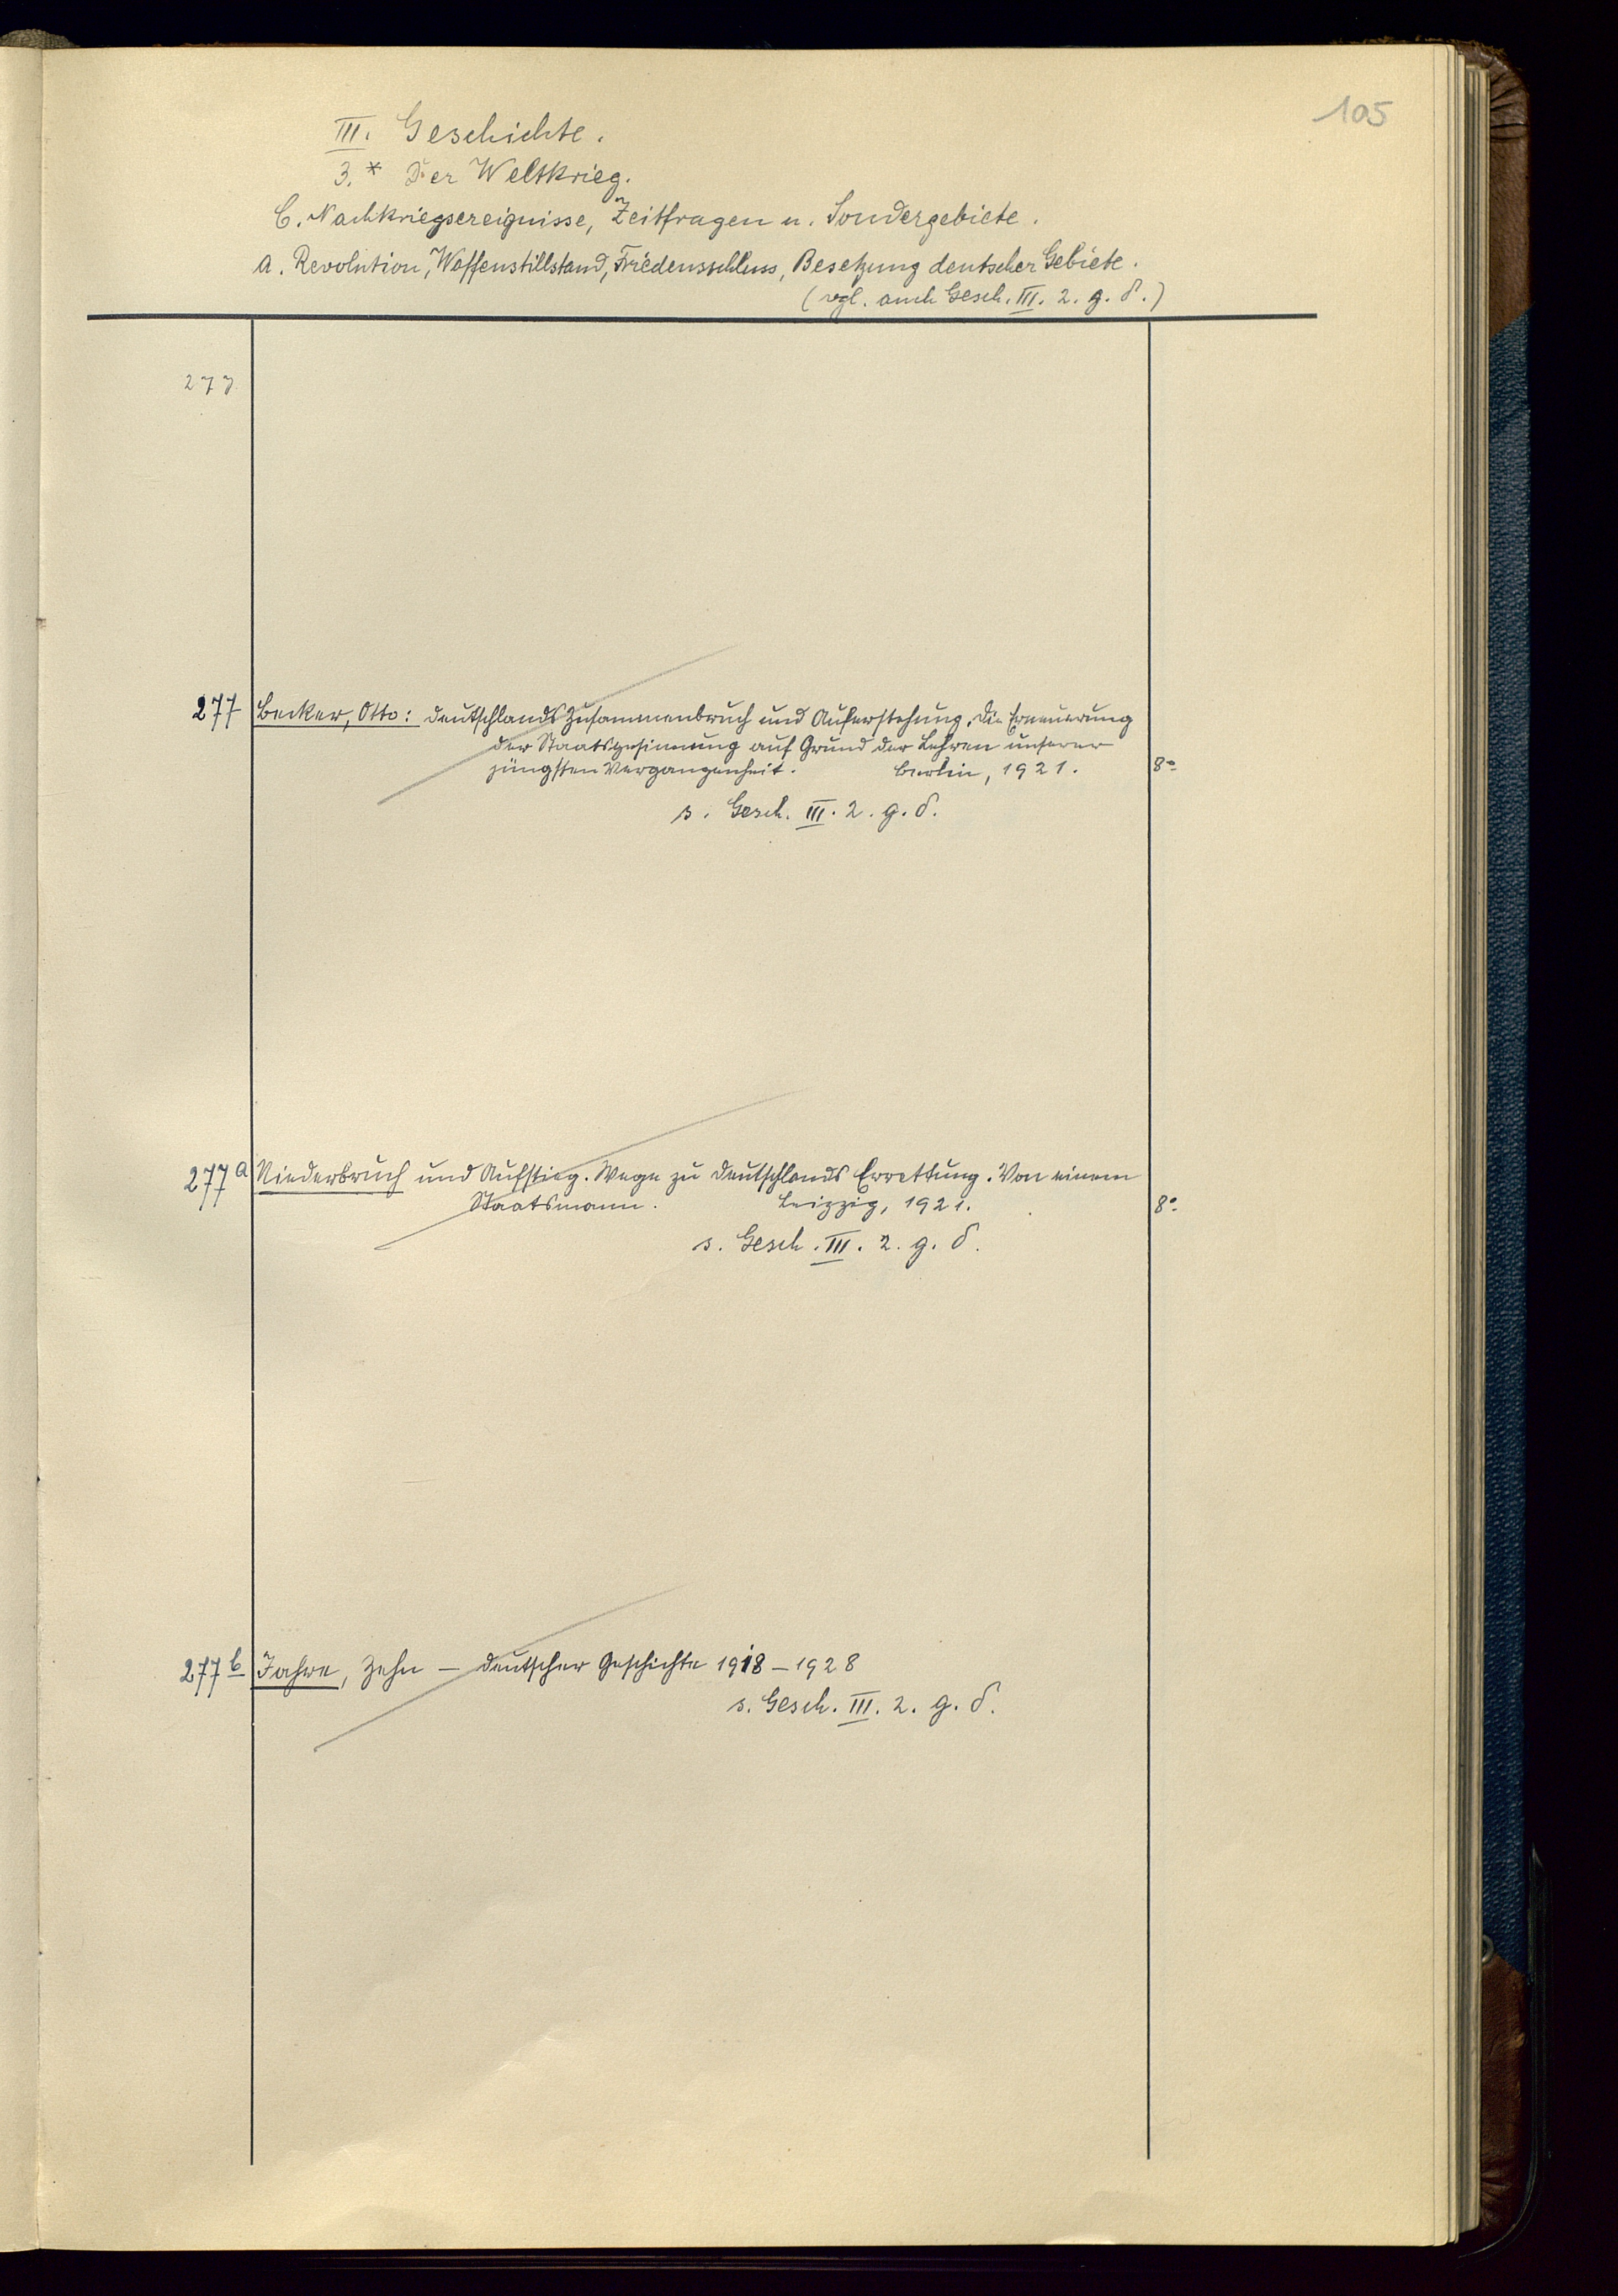 105
III. Geschichte.
3.* Der Weltkrieg.
C. Nachkriegsereignisse, Zeitfragen u. Sondergebiete.
a. Revolution, Waffenstillstand, Friedensschluss, Besetzung deutscher Gebiete.
(vgl. auch Gesch. III. 2. g. δ.)
277
277 Becker, Otto: Deutschlands Zusammenbruch und Auferstehung. Die Erneuerung
der Staatsgesinnung auf Grund der Lehren unserer
jüngsten Vergangenheit. Berlin, 1921. 8°
s. Gesch. III. 2. g. δ.
277a Niederbruch und Aufstieg. Wege zu Deutschlands Errettung. Von einem
Staatsmann. Leipzig, 1921. 8°
s. Gesch. III. 2. g. δ.
277b Jahre, Zehn — deutscher Geschichte 1918–1928
s. Gesch. III. 2. g. δ.